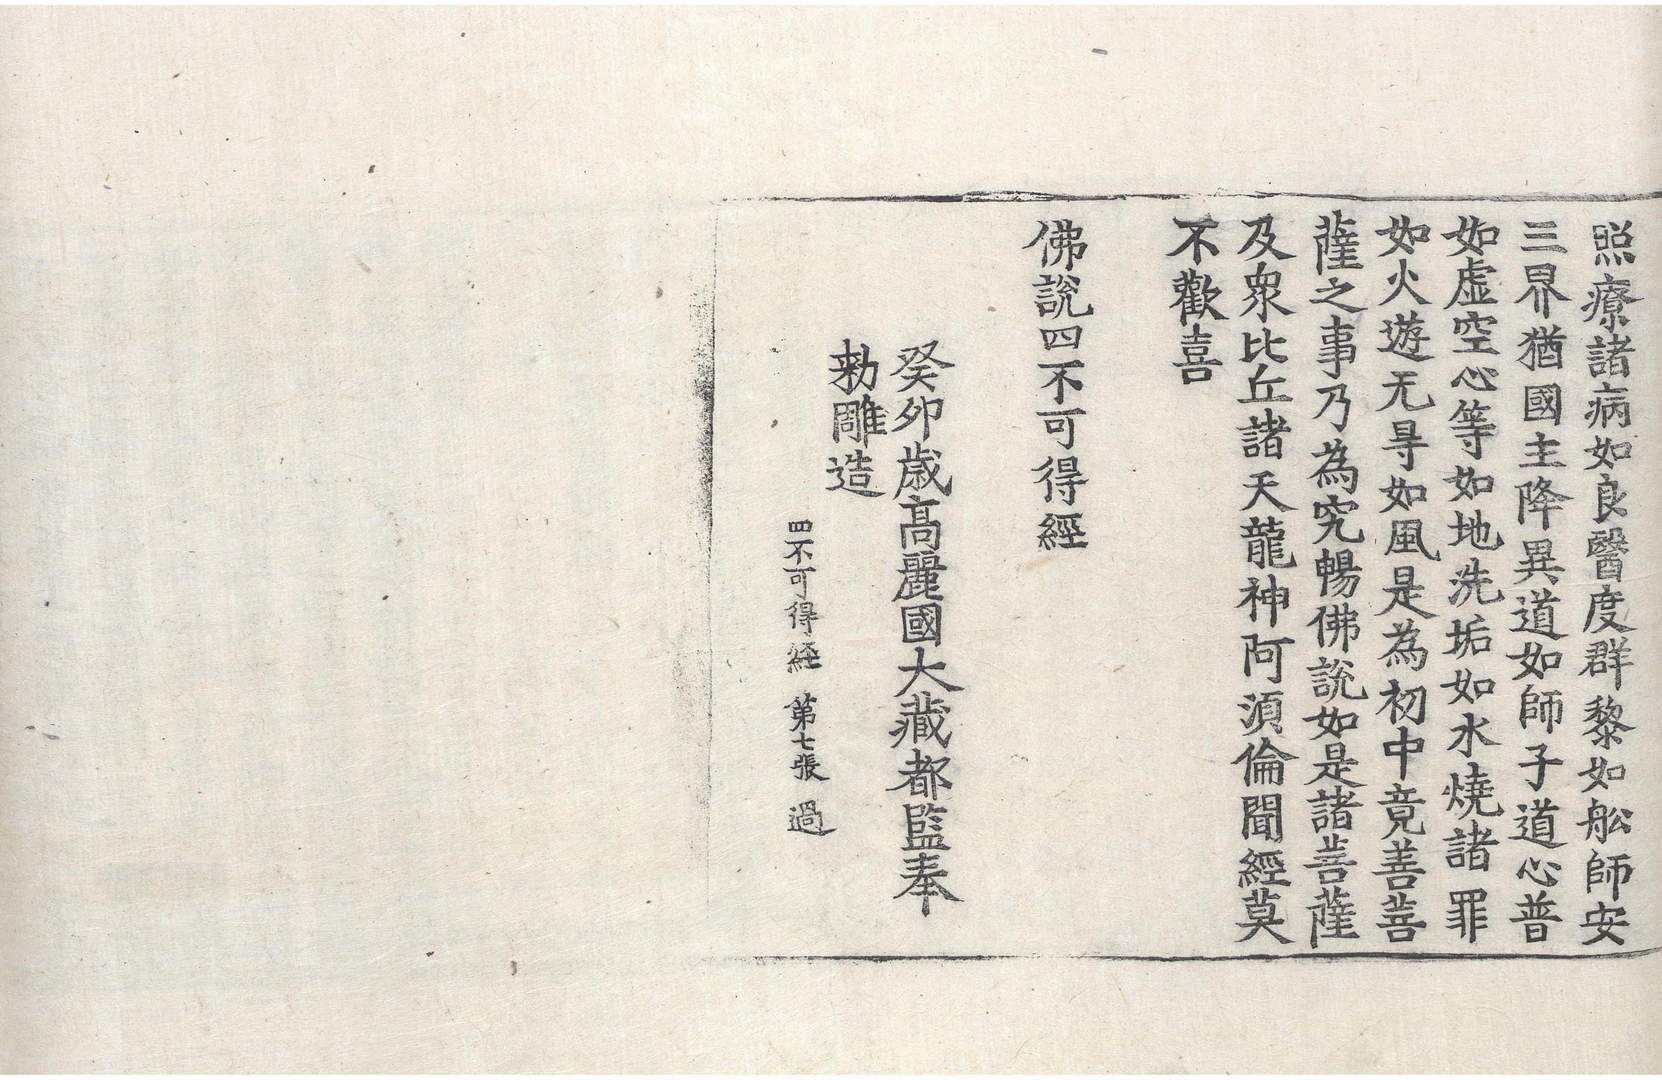 照療諸病如良醫度群黎如舩師安
三界猶國主降異道如師子道心普
如虛空心等如地洗垢如水燒諸罪
如火遊无㝵如風是為初中竟善菩
薩之事乃為究暢佛說如是諸菩薩
及衆比丘諸天龍神阿須倫聞經莫
不歡喜
佛說四不可得經
癸卯歲高麗國大藏都監奉
勅雕造
四不可得經 第七張 過